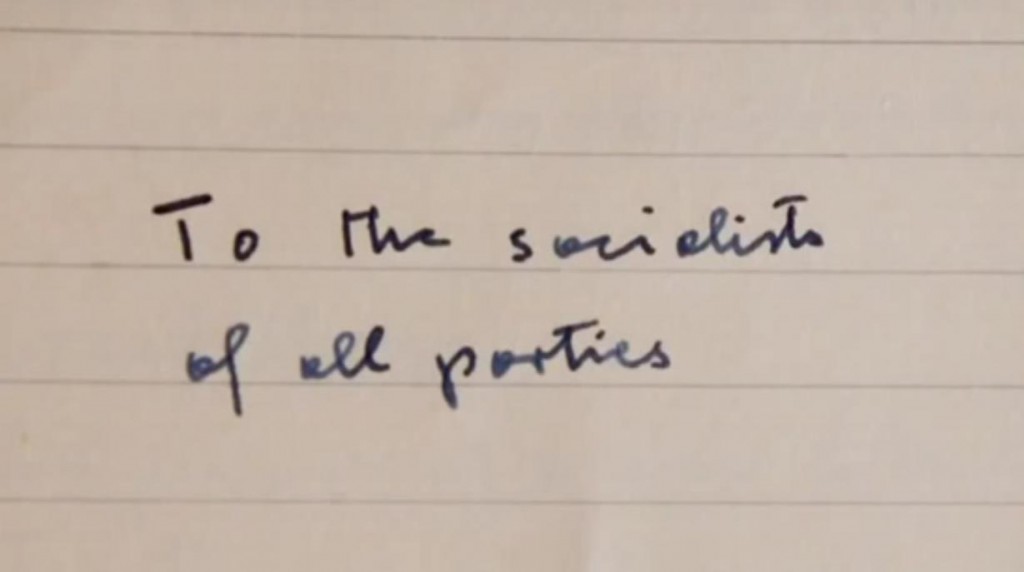 To the socialists
of all parties